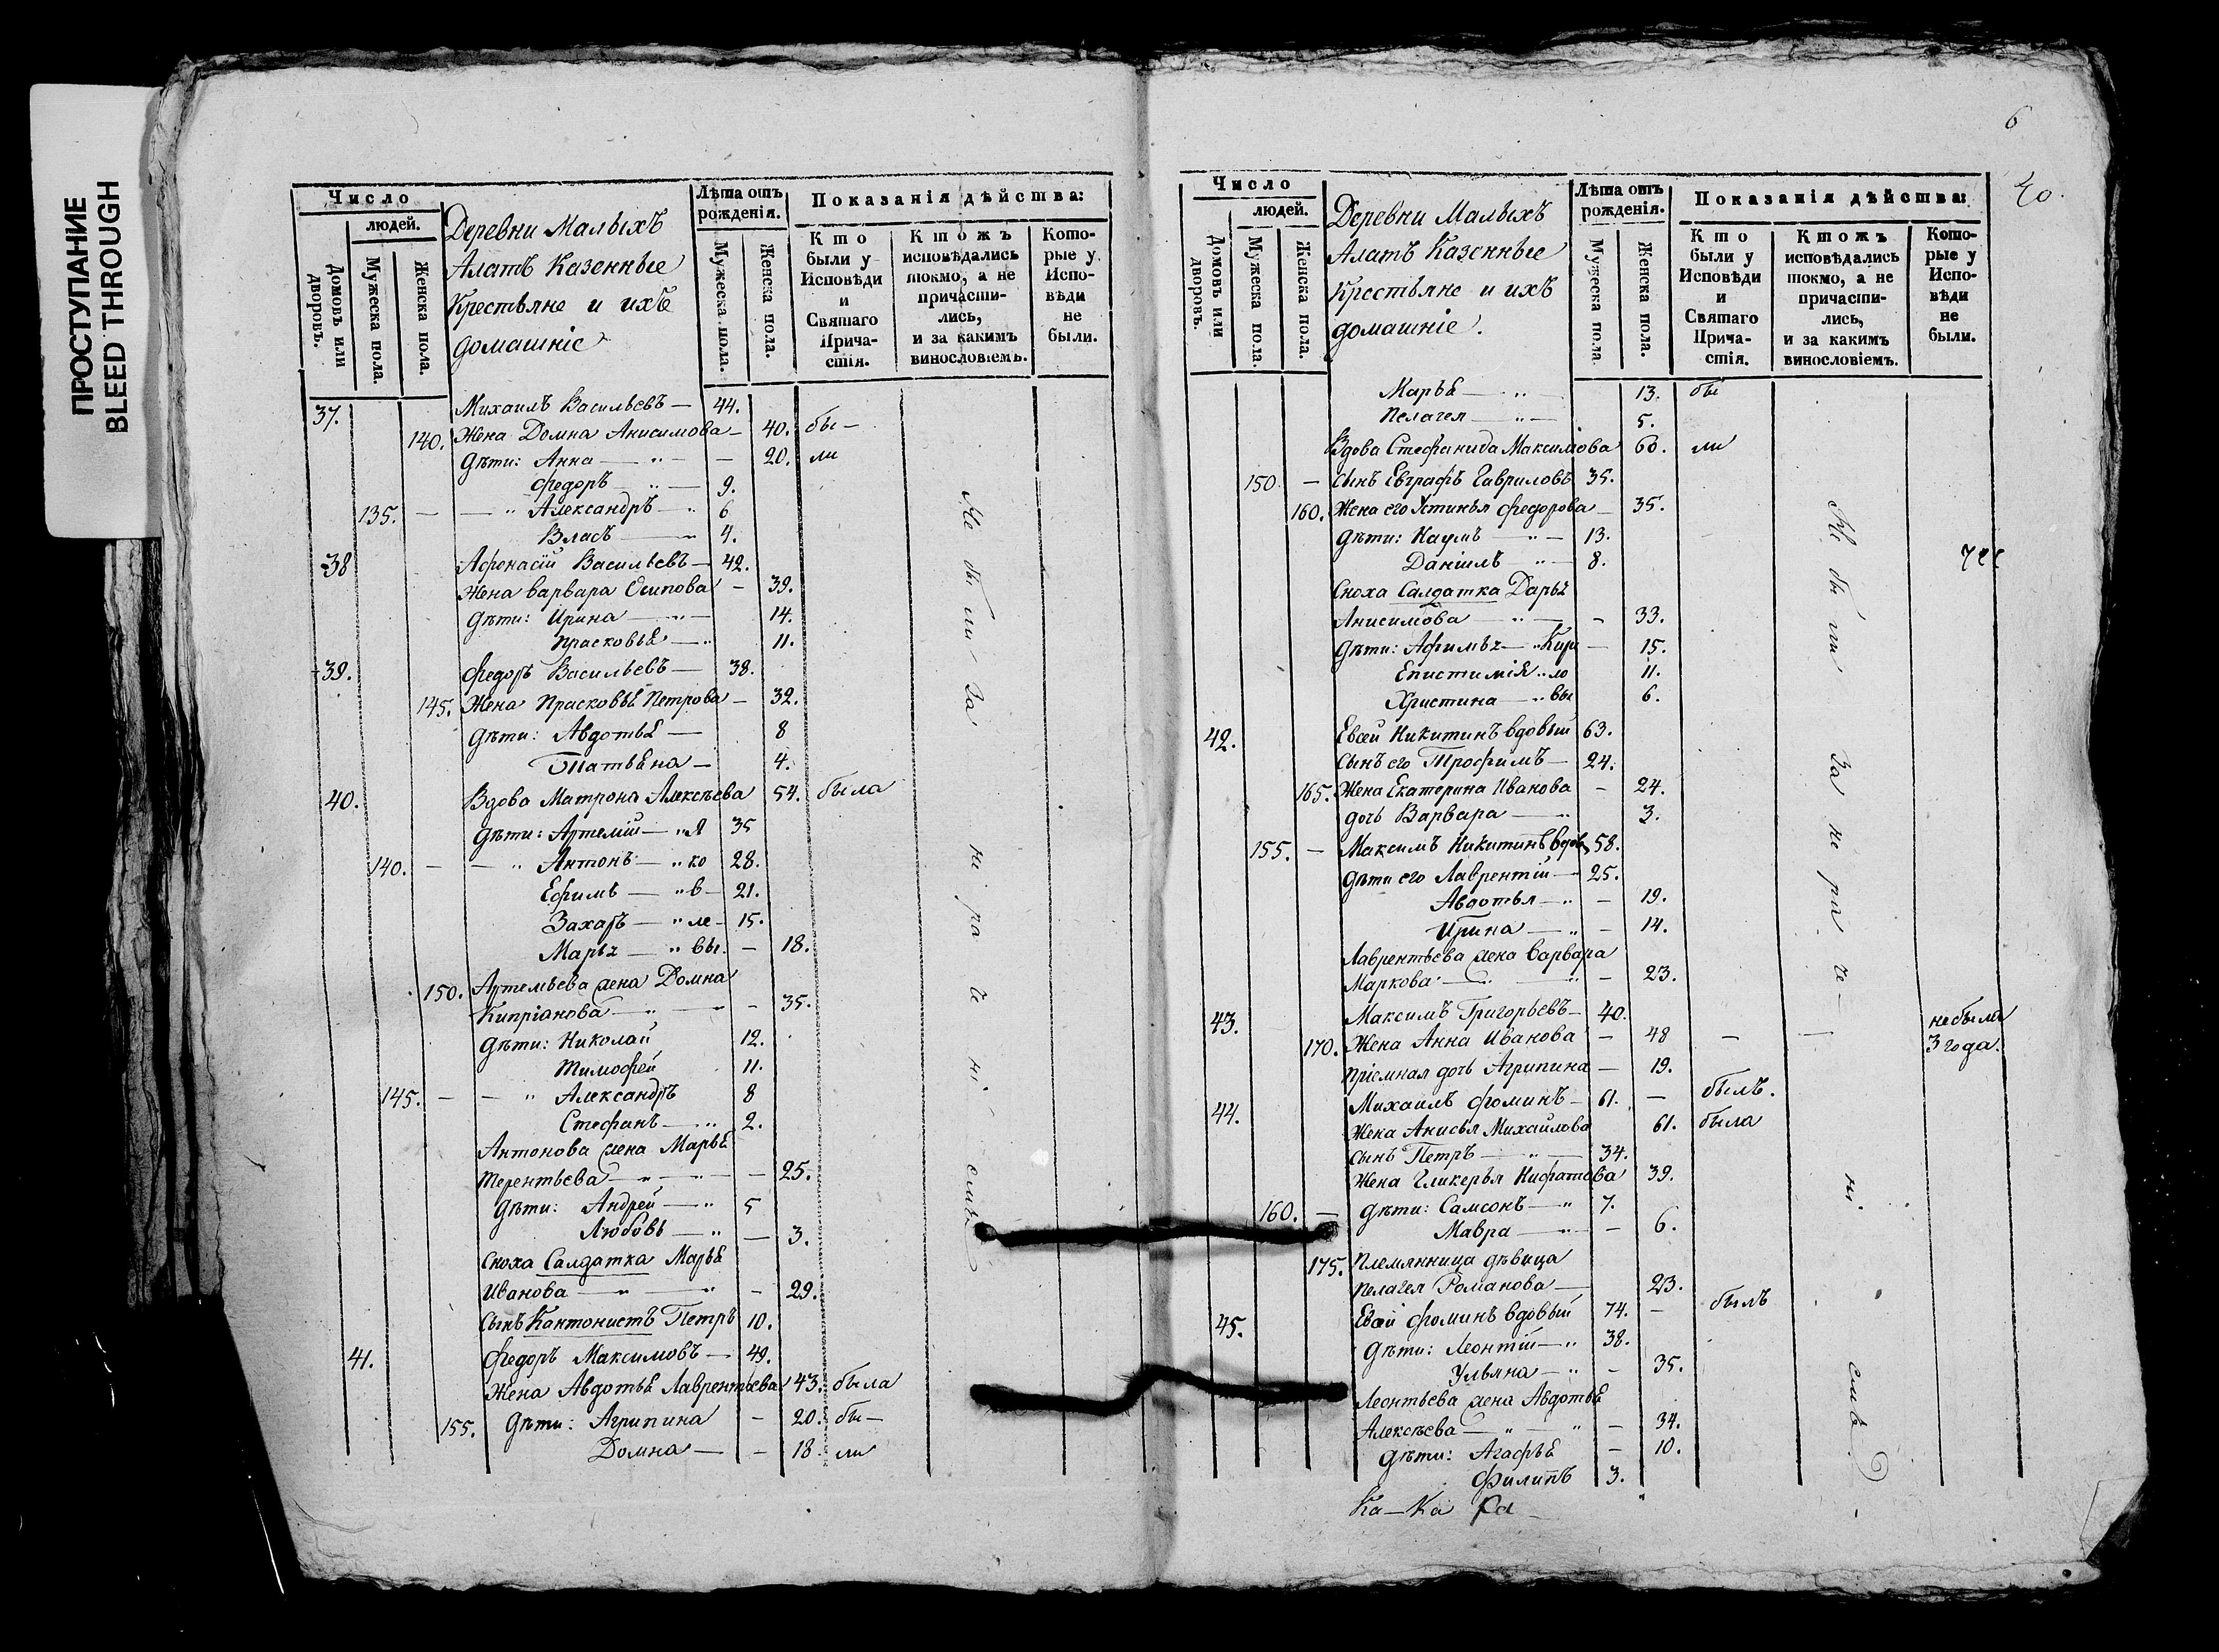 ПРОСТУПАНИЕ
BLEED THROUGH
Число
людей.
Домовъ или дворовъ.
Мужеска пола.
Женска пола.
Деревни Малыхъ
Алатъ Казенные
Крестьяне и ихъ
домашніе
Лѣта отъ рожденія.
Мужеска пола.
Женска пола.
Показанія дѣйства:
Кто были у Исповѣди и Святаго Причастія.
Ктожъ исповѣдались токмо, а не причастились, и за какимъ винословіемъ.
Которые у Исповѣди не были.
37. Михаилъ Васильевъ — 44.
140. Жена Домна Анисимова — 40. бы —
дѣти: Анна — „ — — 20. ли
Федоръ — „ — 9.
135. — — „ Александръ — „ 6
Власъ — „ 4.
38 Афонасій Васильевъ — 42.
Жена Варвара Осипова — 39.
дѣти: Ирина — „ — 14.
Прасковья — „ 11.
39. Федоръ Васильевъ — 38.
145. Жена Прасковья Петрова — 32.
дѣти: Авдотья — 8
Татьяна — 4.
40. Вдова Матрона Алексѣева 54. была
дѣти: Артемій — „ Я 35
140. — — „ Антонъ — „ ко 28.
Ефимъ — „ в — 21.
Захаръ — „ ле — 15.
Марья — „ вы. — 18.
150. Артемьева жена Домна
Кипріанова — „ — — 35.
дѣти: Николай 12.
Тимофей 11.
145. — — „ Александръ 8
Стефанъ — „ 2.
Антонова жена Марья
Терентьева — „ — „ — 25.
дѣти: Андрей — „ 5
Любовь — „ — 3.
Сноха Салдатка Марья
Иванова — „ — „ — 29.
Сынъ Кантонистъ Петръ 10.
41. Федоръ Максимовъ — 49.
Жена Авдотья Лаврентьева 43. была
155. дѣти: Агрипина — 20. бы —
Домна — — 18. ли
Не бы ли — За не ра че ні — емъ
6
Число
людей.
Домовъ или дворовъ.
Мужеска пола.
Женска пола.
Деревни Малыхъ
Алатъ Казенные
Крестьяне и ихъ
домашніе.
Лѣта отъ рожденія.
Мужеска пола
Женска пола.
Показанія дѣйства:
Кто были у Исповѣди и Святаго Причастія.
Ктожъ исповѣдались токмо, а не причастились, и за какимъ винословіемъ.
Которые у Исповѣди не были.
Марья — „ — 13. бы
Пелагея — „ — 5.
Вдова Стефанида Максимова 60. ли
150. — Сынъ Евграфъ Гавриловъ 35.
160. Жена его Устинья Федорова — 35.
дѣти: Наумъ — „ — 13.
Даніилъ „ — 8.
Сноха Салдатка Дарья
Анисимова — „ — — 33.
дѣти: Афимья — „ Кири — 15.
Епистимія „ ло 11.
Христина — „ вы 6.
42. Евсей Никитинъ вдовый 63.
Сынъ его Трофимъ — 24.
165. Жена Екатерина Иванова — 24.
дочь Варвара — „ 3.
155. — Максимъ Никитинъ вдов. 58.
дѣти его Лаврентій — 25.
Авдотья — „ — 19.
Ирина — „ — 14.
Лаврентьева жена Варвара
Маркова — „ — „ — 23.
43. Максимъ Григорьевъ — 40. не были
170. Жена Анна Иванова — 48 — 3 года.
Пріемная дочь Агрипина — 19.
44. Михаилъ Фоминъ — 61. — былъ.
Жена Анисья Михайлова 61. была
Сынъ Петръ — „ — 34.
Жена Гликерья Нифатова 39.
160. — дѣти: Самсонъ — „ 7.
Мавра — „ — 6.
175. Племянница дѣвица
Пелагея Романова — 23.
45. Евсей Фоминъ вдовый 74. — былъ
дѣти: Леонтій — „ 38.
Ульяна — „ — 35.
Леонтьева жена Авдотья
Алексѣева — „ — „ — 34.
дѣти: Агафья — 10.
Филипъ 3.
Не бы ли За не ра че — ні емъ